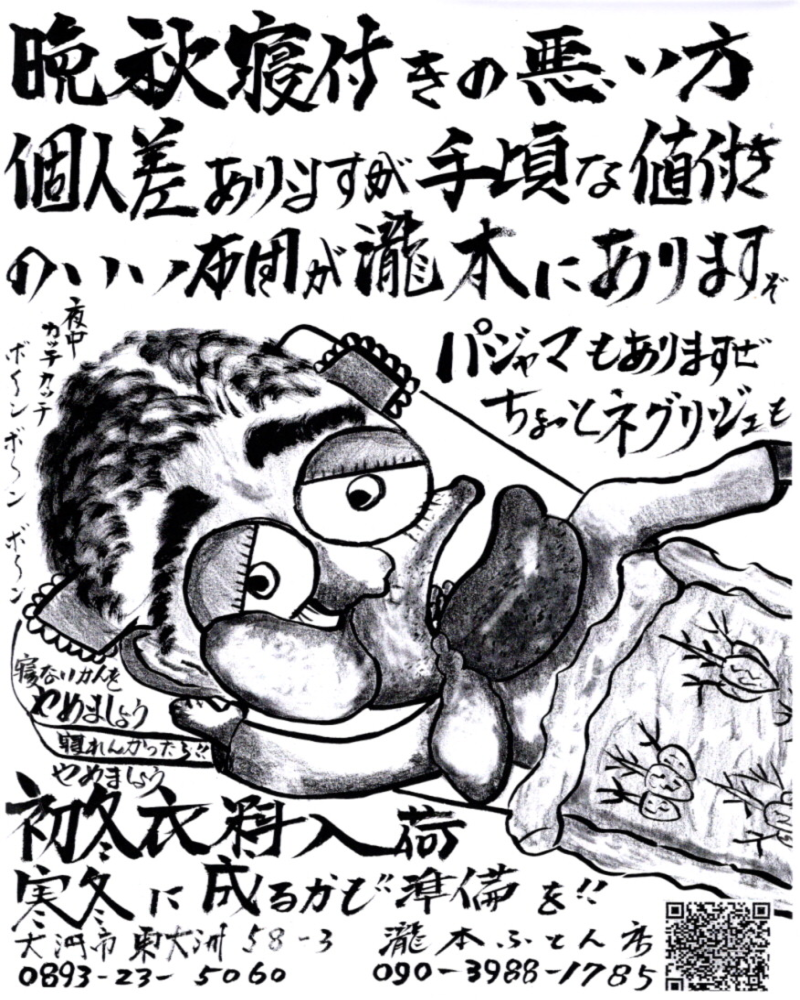 晩秋寝付きの悪い方
個人差ありますが手頃な値付き
のいい布団が瀧本にありますぞ
パジャマもありますぜ
ちょっとネグリジェも
夜中
カッチカッチ
ボーンボーンボーン
寝ないかんを
やめましょう
寝れんかったら!!
やめましょう
初冬衣料入荷
寒冬に成るかも準備を!!
大洲市東大洲58-3 瀧本ふとん店
0893-23-5060 090-3988-1785